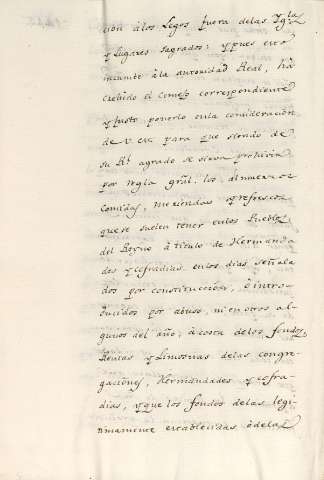 cion à los Legos fuera delas Ygla
y Lugares sagrados; y pues esto
incumbe âla autoridad Real, hà
creido el Consejo correspondiente
y justo ponerlo enla consideracion
de V. para que siendo de
su Rl. agrado se sirva prohivir
por regla gral. los almuerzos
comidas, meriendas y refrescos
que se suelen tener enlos Pueblos
del Reyno à titulo de Hermanda
des y cofradias, enlos dias señala
dos por constitucion, ô intro-
ducidos por abuso, ni en otros al-
gunos del año, â costa delos fondos,
Rentas y Limosnas delas congre-
gaciones, Hermandades y cofra-
dias; y que los fondos delas legi-
timamente establecidas ô delas